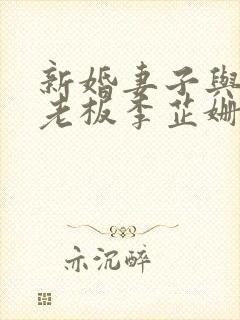 新婚妻子與
老板李芷姗
亦沉醉